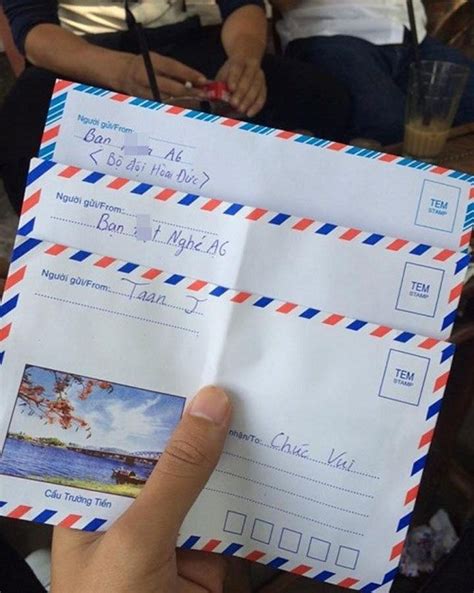 Người gửi/From:
Bạn A6
< Bộ đội Hoài Đức>
TEM
STAMP
Người gửi/From:
Bạn t Nghé A6
TEM
STAMP
Người gửi/From: Taan J
TEM
STAMP
nhận/To: Chúc Vui
Cầu Trường Tiền